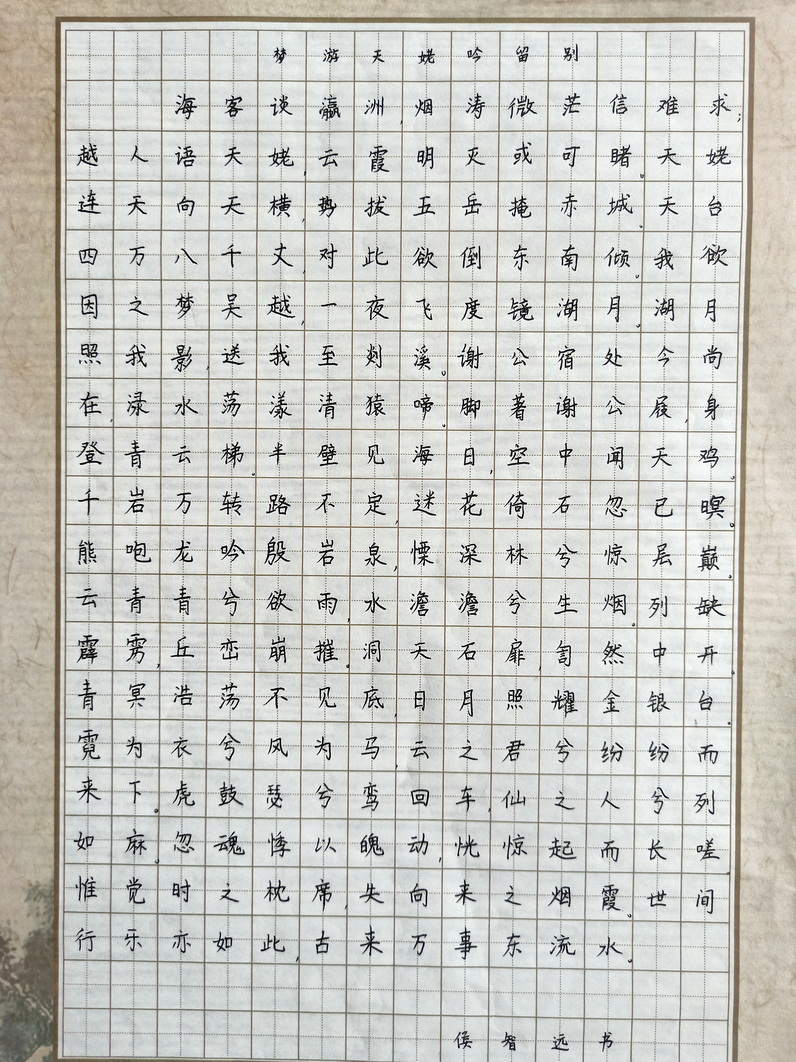 梦游天姥吟留别
海客谈瀛洲,烟涛微茫信难求;
越人语天姥,云霞明灭或可睹。天姥
连天向天横,势拔五岳掩赤城。天台
四万八千丈,对此欲倒东南倾。我欲
因之梦吴越,一夜飞度镜湖月。湖月
照我影,送我至剡溪。谢公宿处今尚
在,渌水荡漾清猿啼。脚著谢公屐,身
登青云梯。半壁见海日,空中闻天鸡。
千岩万转路不定,迷花倚石忽已暝。
熊咆龙吟殷岩泉,慄深林兮惊层巅。
云青青兮欲雨,水澹澹兮生烟。列缺
霹雳,丘峦崩摧。洞天石扉,訇然中开。
青冥浩荡不见底,日月照耀金银台。
霓为衣兮风为马,云之君兮纷纷而
来下。虎鼓瑟兮鸾回车,仙之人兮列
如麻。忽魂悸以魄动,恍惊起而长嗟
惟觉时之枕席,失向来之烟霞。世间
行乐亦如此,古来万事东流水。
侯智远书